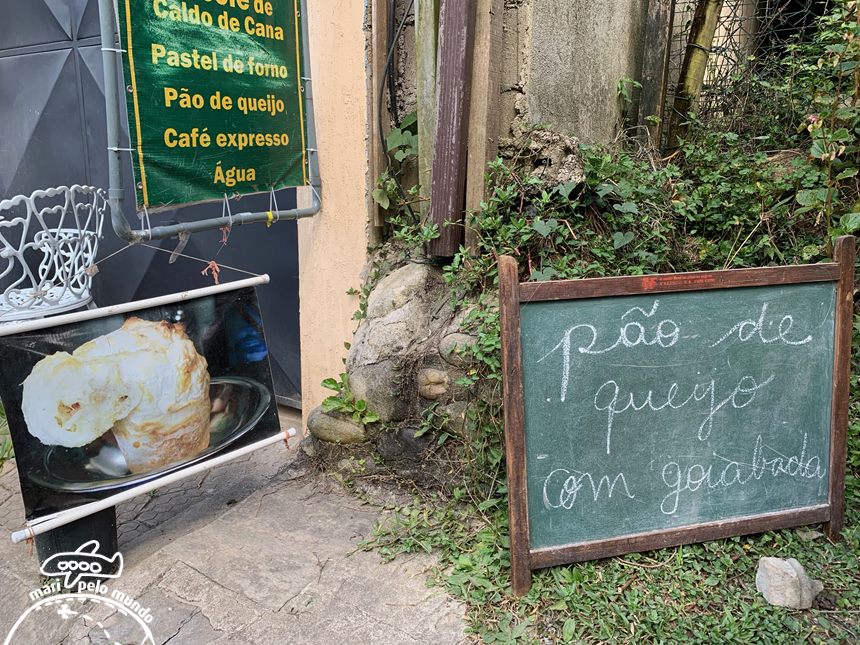 de
Caldo de Cana
Pastel de forno
Pão de queijo
Café expresso
Água
pão de
queijo
com goiabada
mari pelo mundo